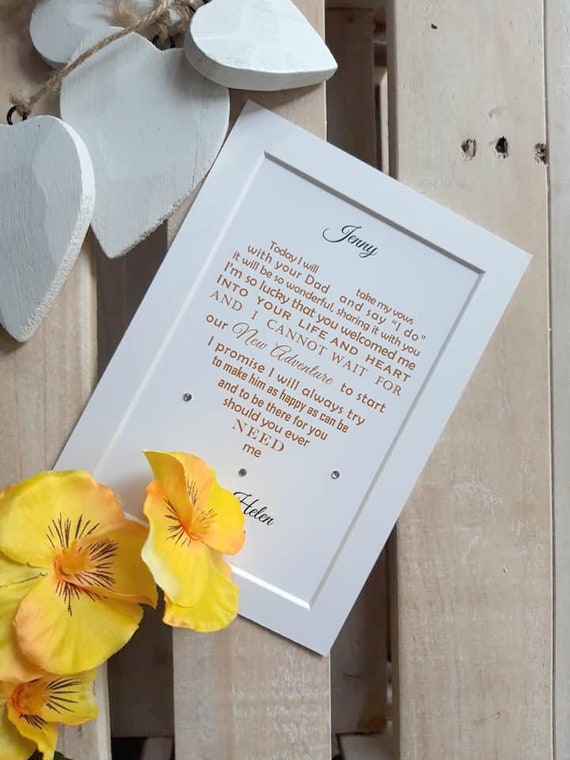 Jenny
Today I will take my vows
with your Dad and say "I do"
it will be so wonderful, sharing it with you
I'm so lucky that you welcomed me
INTO YOUR LIFE AND HEART
AND I CANNOT WAIT FOR
our New Adventure to start
I promise I will always try
to make him as happy as can be
and to be there for you
should you ever
NEED
me
Helen